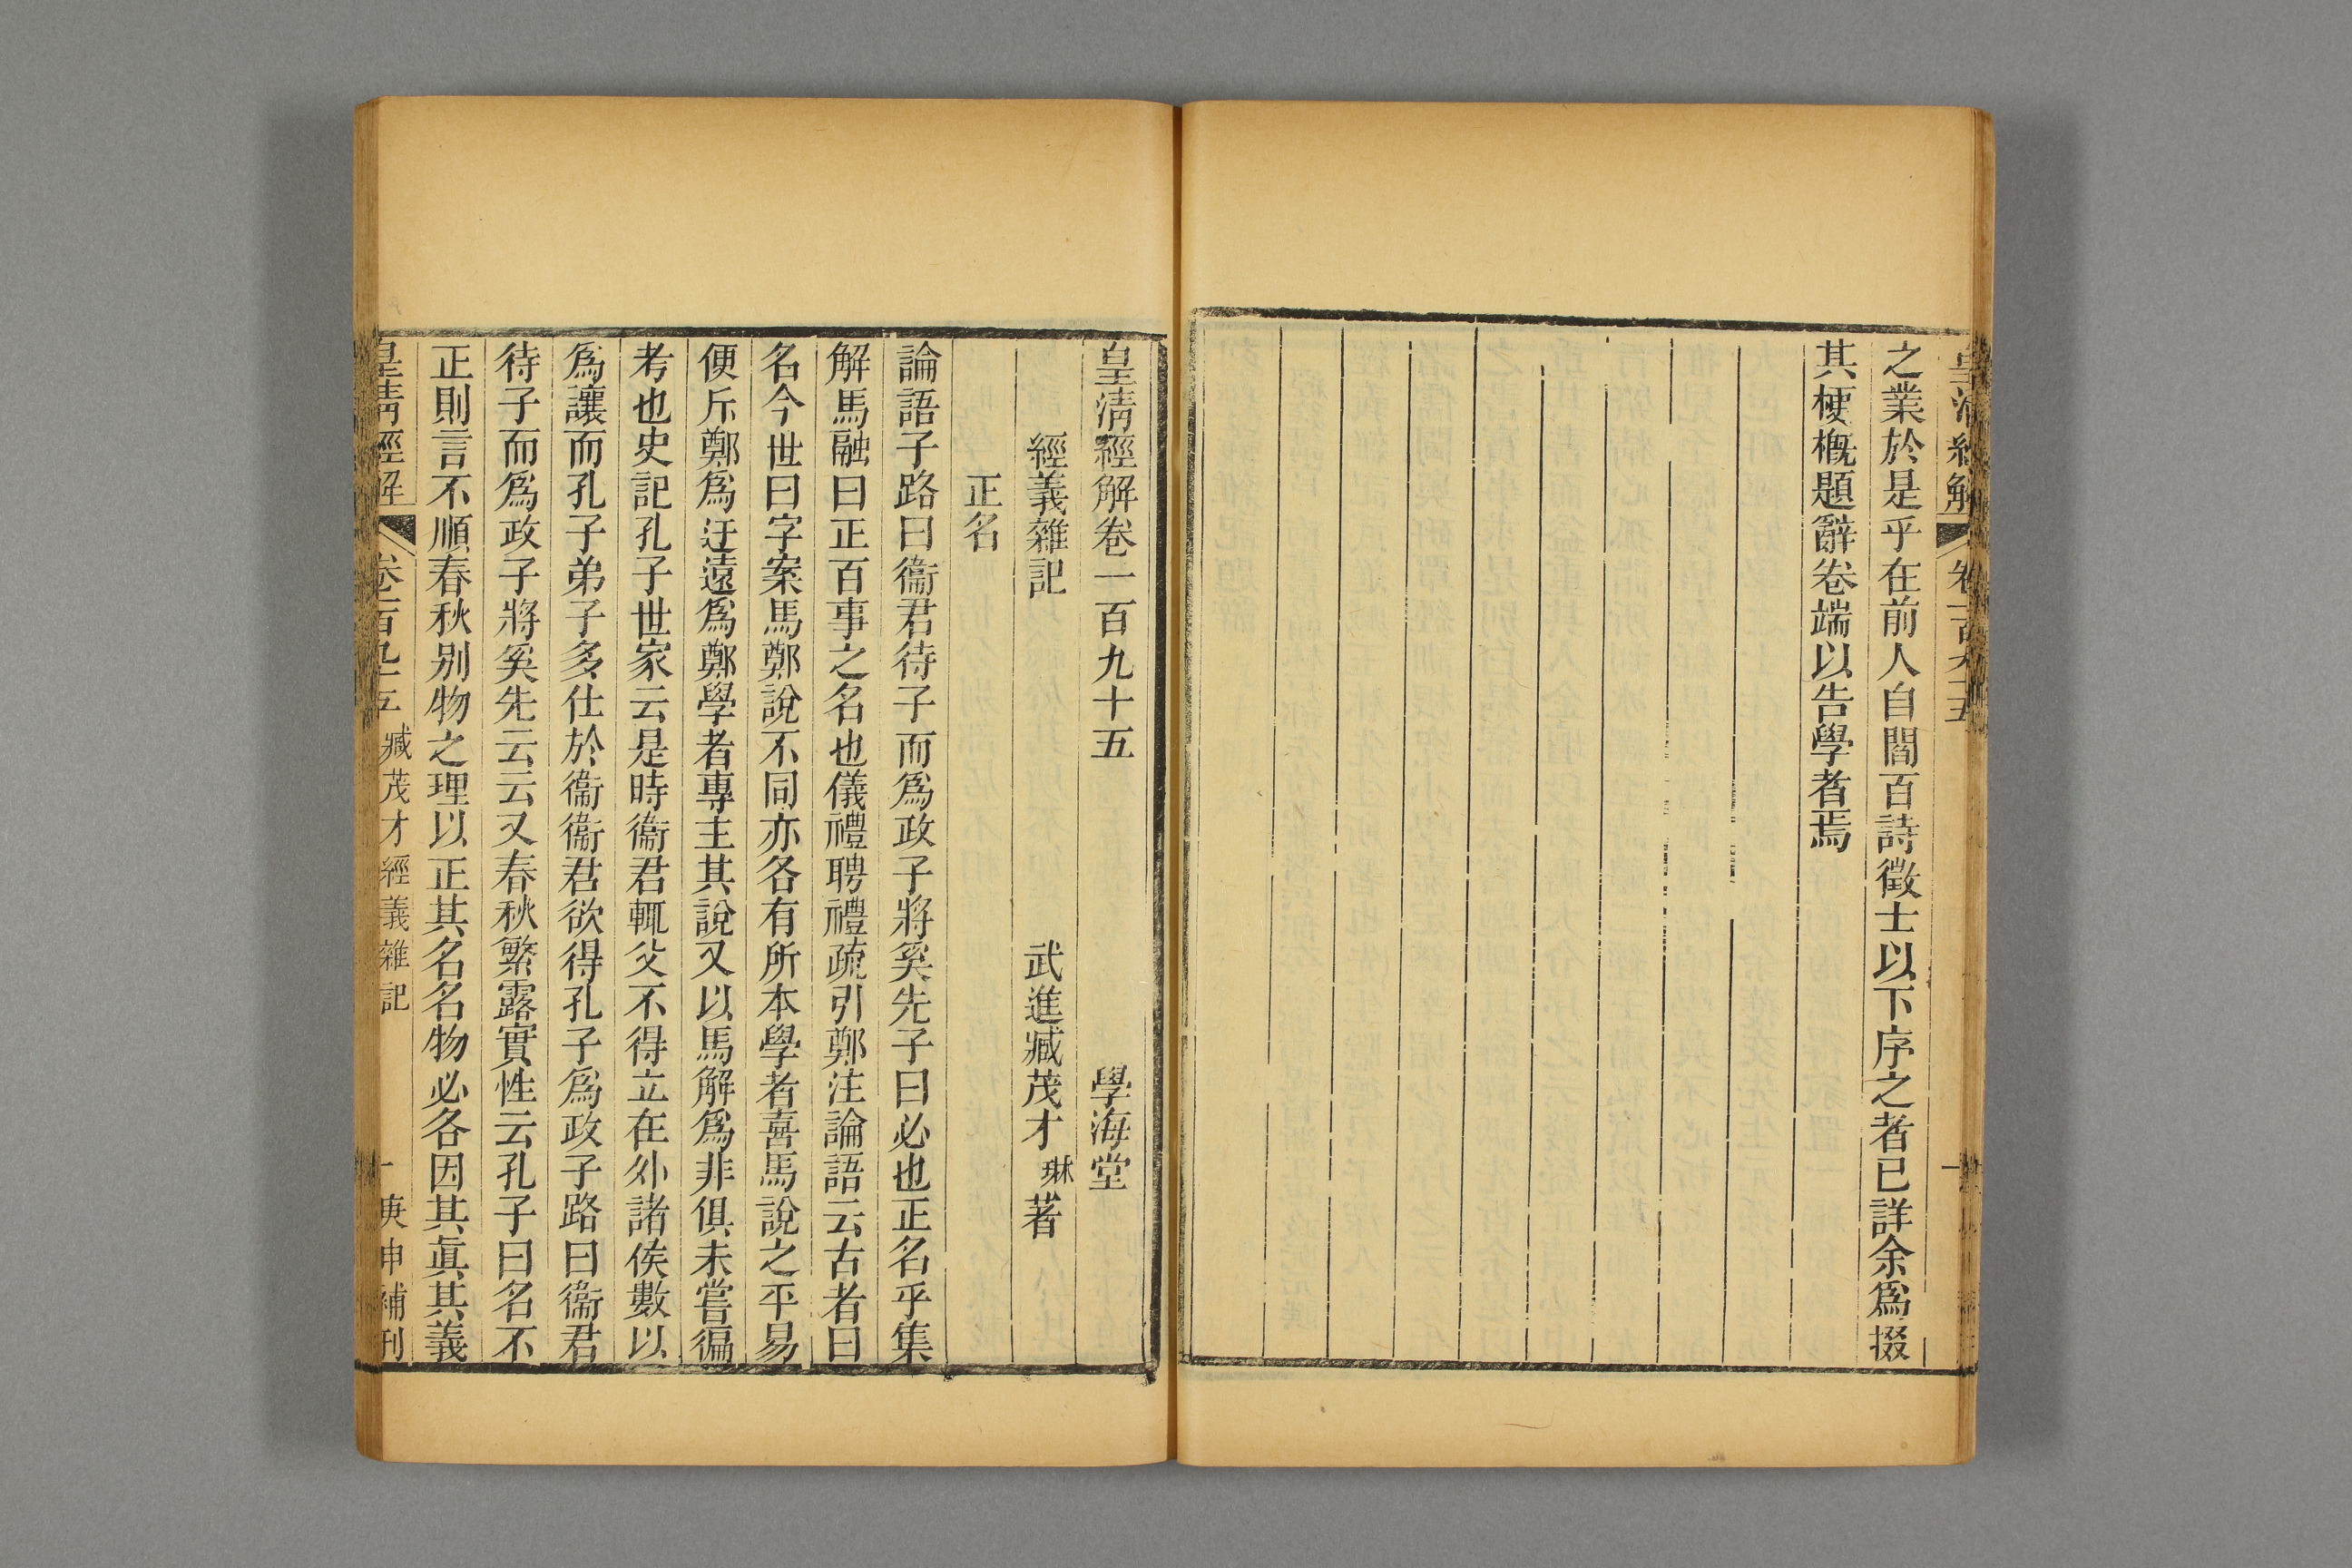 皇清經解 卷一百九十五 一
之業於是乎在前人自閻百詩徵士以下序之者已詳余爲掇
其梗槪題辭卷端以告學者焉
皇清經解卷一百九十五 學海堂
經義雜記 武進臧茂才琳著
正名
論語子路曰衞君待子而爲政子將奚先子曰必也正名乎集
解馬融曰正百事之名也儀禮聘禮疏引鄭注論語云古者曰
名今世曰字案馬鄭說不同亦各有所本學者喜馬說之平易
便斥鄭爲迂遠爲鄭學者專主其說又以馬解爲非俱未嘗徧
考也史記孔子世家云是時衞君輒父不得立在外諸侯數以
爲讓而孔子弟子多仕於衞衞君欲得孔子爲政子路曰衞君
待子而爲政子將奚先云云又春秋繁露實性云孔子曰名不
正則言不順春秋别物之理以正其名名物必各因其眞其義
皇清經解 卷一百九十五 臧茂才經義雜記 一 庚申補刊